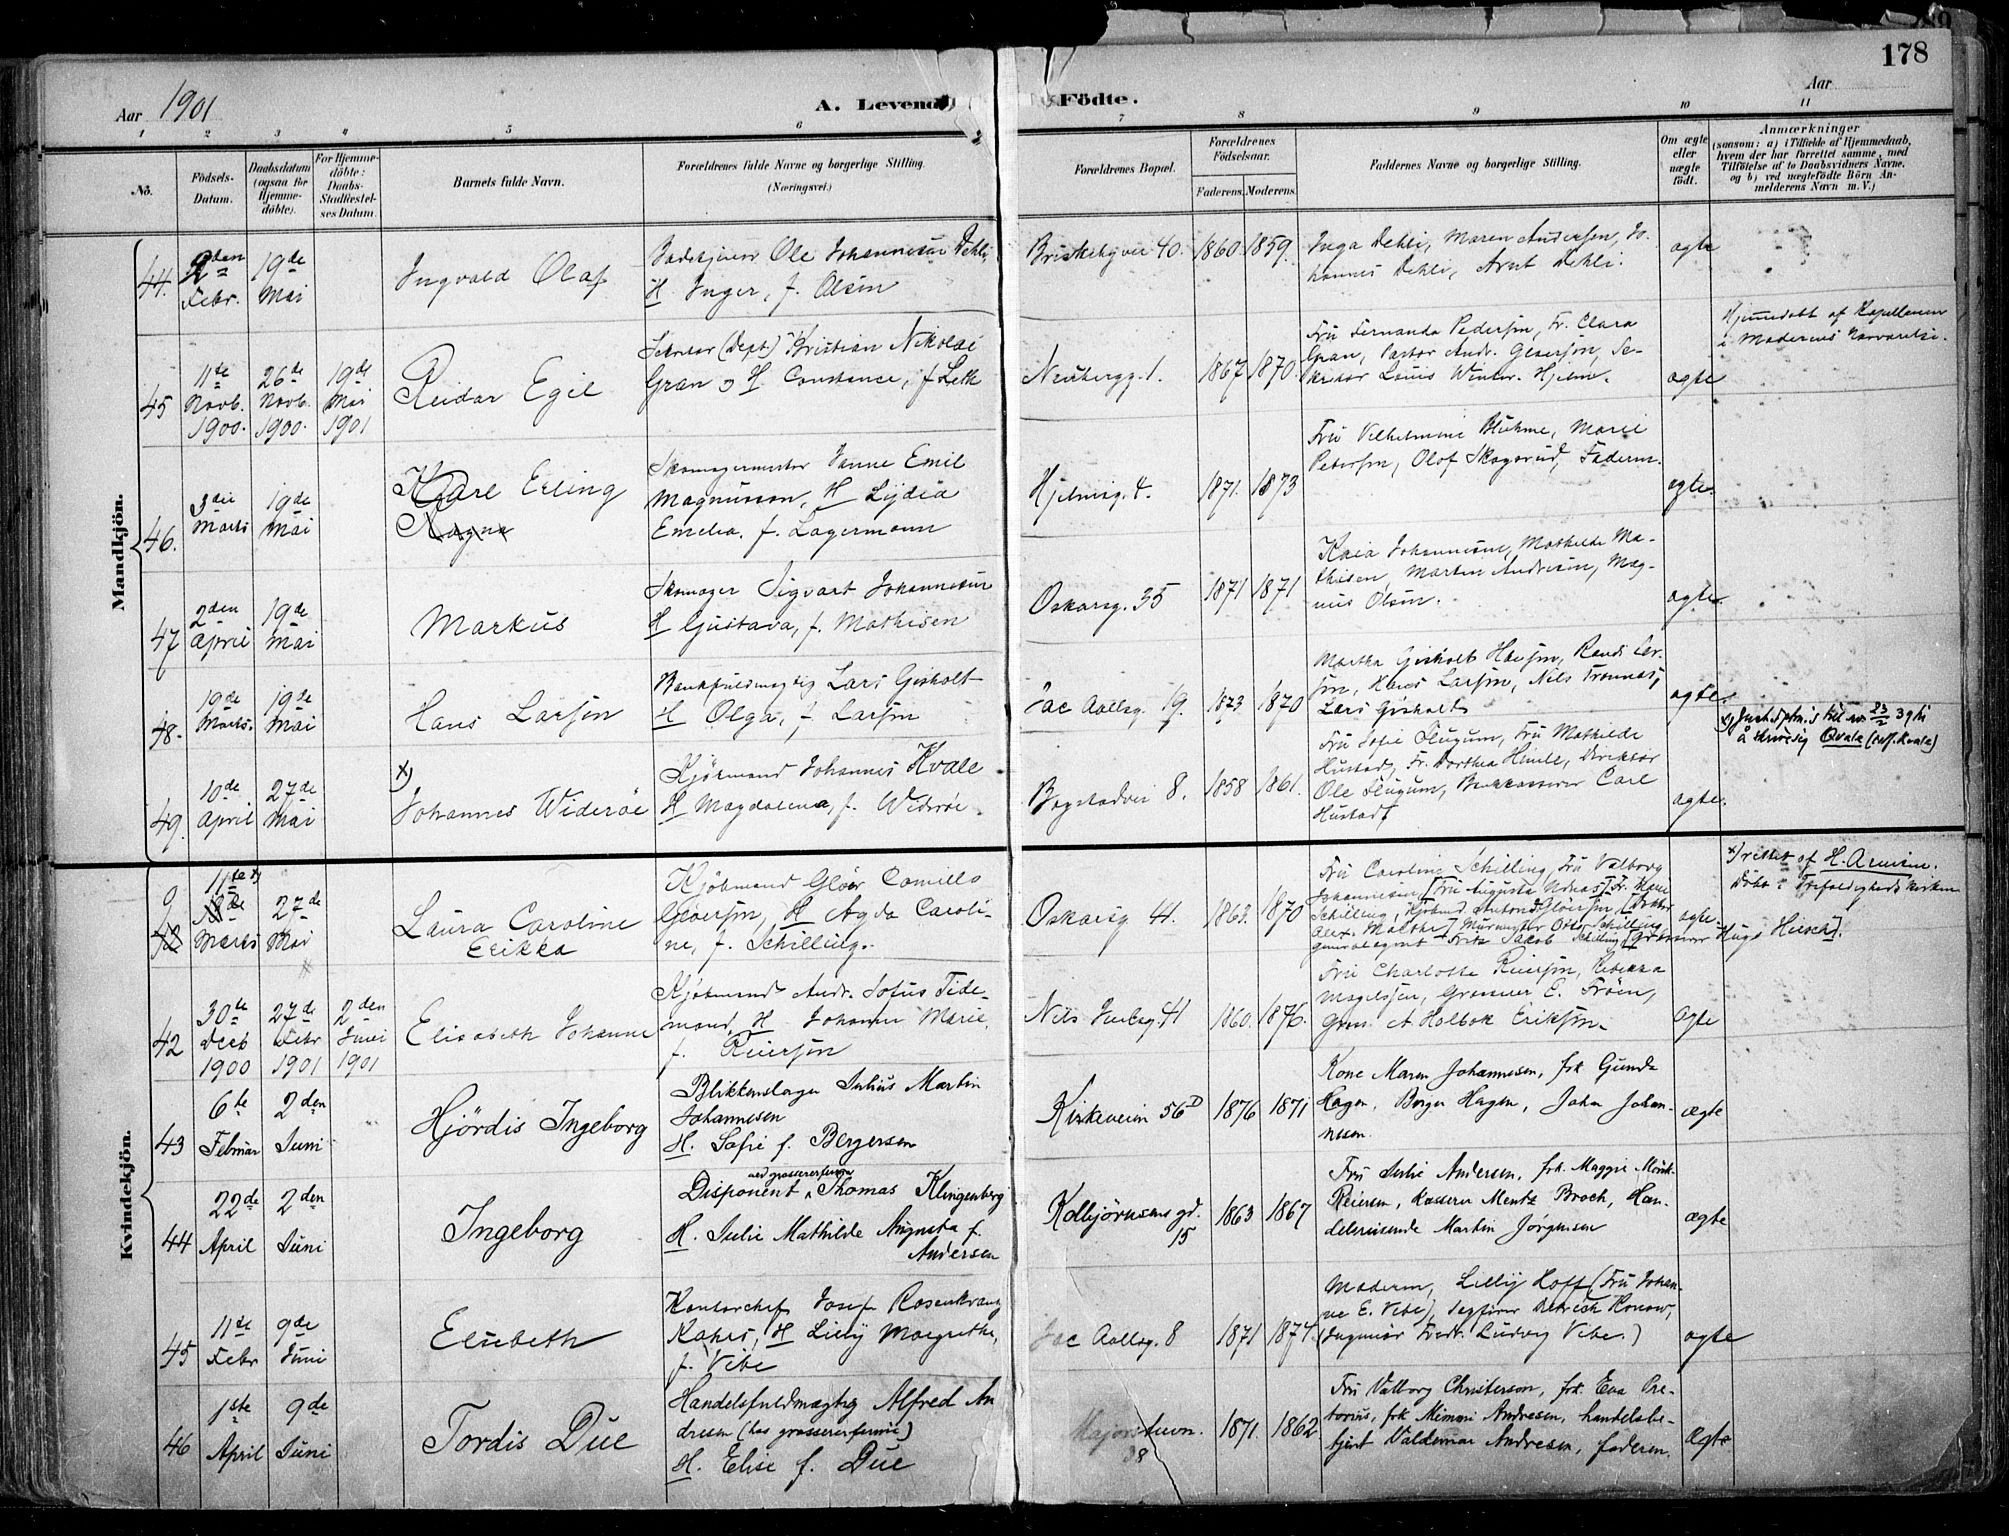 178
Aar 1901
A. Levende Födte.
Aar
1 2 3 4 5 6 7 8 9 10 11
No.
Födsels-
Datum.
Daabsdatum
(ogsaa for
Hjemme-
döbte).
For Hjemme-
döbte:
Daabs-
Stadfæstel-
ses Datum.
Barnets fulde Navn.
Forældrenes fulde Navne og borgerlige Stilling.
(Næringsvei.)
Forældrenes Bopæl.
Forældrenes
Födselsaar.
Faderens. Moderens.
Faddernes Navne og borgerlige Stilling.
Om ægte
eller
uægte
födt.
Anmærkninger
(saasom: a) i Tilfælde af Hjemmedaab,
hvem der har forrettet samme, med
Tilföielse af to Daabsvidners Navne,
og b) ved uægtefödte Börn An-
melderens Navn m. V.)
Mandkjön.
44. 2den Febr. 19de Mai
Ingvald Olaf
Ole Johannesen Dehli,
H Inger, f. Olsen
Briskebyvei 40. 1860. 1859.
Inga Dehli, Maren Andersen, Jo-
hannes Dehli, Arnt Dehli.
ægte
45 11te Novb. 1900. 26de Novb. 1900. 19de Mai 1901
Reidar Egil
Sekretær (Dept) Kristian Nikolai
Gran og H Constance, f.
Neubergg. 1. 1867 1870
Fru Fernanda Pedersen, Fr. Clara
Gran, Pastor Andr. Gløersen, Se-
kretær Louis Winter-Hjelm.
ægte
Hjemmedøbt af Kapellanen
i Moderens Nærværelse.
46. 3die Marts 19de Mai
Kaare Erling
Ragnar
Skomagermester Janne Emil
Magnusson, H Lydia
Emelia, f. Lagermann
Hjelmsg. 4. 1871. 1873
Fru Vilhelmine Bluhme, Marie
Petersen, Olof Skogsrud, Faderen.
ægte.
47 2den April 19de Mai
Markus
Skomager Sigvart Johannesen
H Gustava, f. Mathisen
Oskarsg. 35 1871 1871
Kaia Johannesen, Mathilde Ma-
thisen, Martin Andresen, Mag-
nus Olsen.
ægte.
48. 19de Marts. 19de Mai
Hans Larsen
Bankfuldmægtig Lars Gisholt
H Olga, f. Larsen
Jac Aallsg. 19. 1873 1870
Martha Gisholt Hansen, Randi Lar-
sen, Hans Larsen, Nils Trønnes,
Lars Gisholt
ægte.
49. 10de April 27de Mai
x)
Johannes Widerøe
Kjöbmand Johannes Kvale
H Magdalena, f. Widerøe
Bogstadvei 8. 1858 1861.
Fru Sofie Flugum, Fru Mathilde
Hustad, Fr. Dorthea Heimle, Direktør
Ole Flugum, Bankkasserer Carl
Hustad
ægte.
x) Justisdptm.s til. av 23/2 39 til
å skrive sig Qvale (isf. Kvale)
Kvindekjön.
11te x) Marts 27de Mai
Laura Caroline
Erikka
Kjöbmand Gløer Camillo
Gløersen, H Agda Caroli-
ne, f. Schilling.
Oskarsg 41. 1863. 1870
Fru Caroline Schilling, Fru Valborg
Johannesen, [Fru Augusta], Fr. Marie
Schilling, Kjøbmd. Anton Gløersen, [Doktor
Alex. Malthe] Murmester Otto Schilling,
generalagent Fritz Jakob Schilling [Grosserer Hugo Hirsch].
ægte.
x) rettet af H. Arnesen.
Döbt i Trefoldighedskirken
42 30te Decb 1900 27de Febr 1901 2den Juni 1901
Elisabeth Johanne
Kjöbmand Andr. Sofus Tide-
mand, H Johanne Marie,
f. Reiersen
Nils Juelsg. 41 1860. 1876.
Fru Charlotte Reiersen, Rebekka
Magelssen, Grosserer E. Frøen,
Gros. A Holbæk Eriksen.
ægte
43 6te Februar 2den Juni
Hjördis Ingeborg
Blikkenslager Julius Martin
Johannesen
H. Sofie f. Bergersen
Kirkeveien 56D 1876 1871
Kone Maren Johannesen, frk Gunda
Hagen, Borger Hagen, Johan Johan-
nesen.
ægte
44 22de April 2den Juni
Ingeborg
ved grossererfirma
Disponent Thomas Klingenberg
H. Julie Mathilde Augusta f.
Andersen
Kolbjørnsens gd.
15
1863 1867
Fru Julie Andersen, frk. Maggie Mönk-
Reiersen, kasserer Mentz Broch, Han-
delsreisende Martin Jørgensen
ægte
45 11te Febr 9de Juni
Elisabeth
Kontorchef Josef Rosenkrantz
Kahrs, H Lilly Margrethe,
f. Vibe
Jac Aallsg. 8 1871 1874
Moderen, Lilly Hoff (Fru Johan-
ne E. Vibe), Sagfører Didrich Konow,
(Ingeniør Fredr. Ludvig Vibe.)
ægte
46 1ste April 9de Juni
Tordis Due
Handelsfuldmægtig Alfred An
dresen (hos grossererfirma)
H. Elise f. Due
Majorstuvn.
38
1871. 1862
Fru Valborg Christersen, frk. Eva Pre-
torius, frk Mimmi Andresen, handelsbe-
tjent Valdemar Andresen, faderen.
Ægte